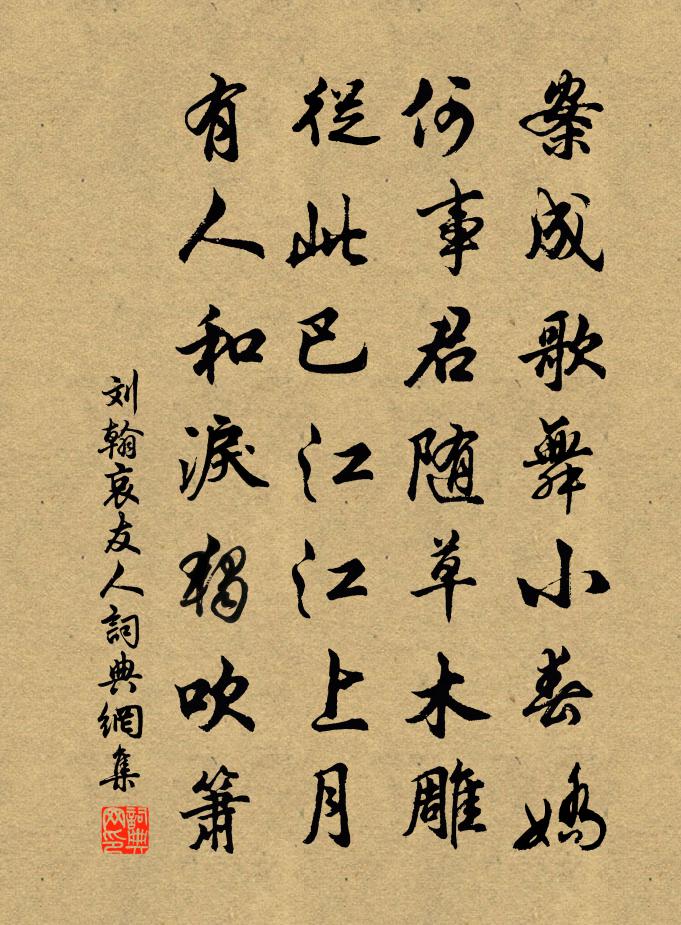 案成歌舞小春嬌
何事君随草木雕
從此巴江江上月
有人和淚獨吹簫
刘翰哀友人詞典網集
詞典網印